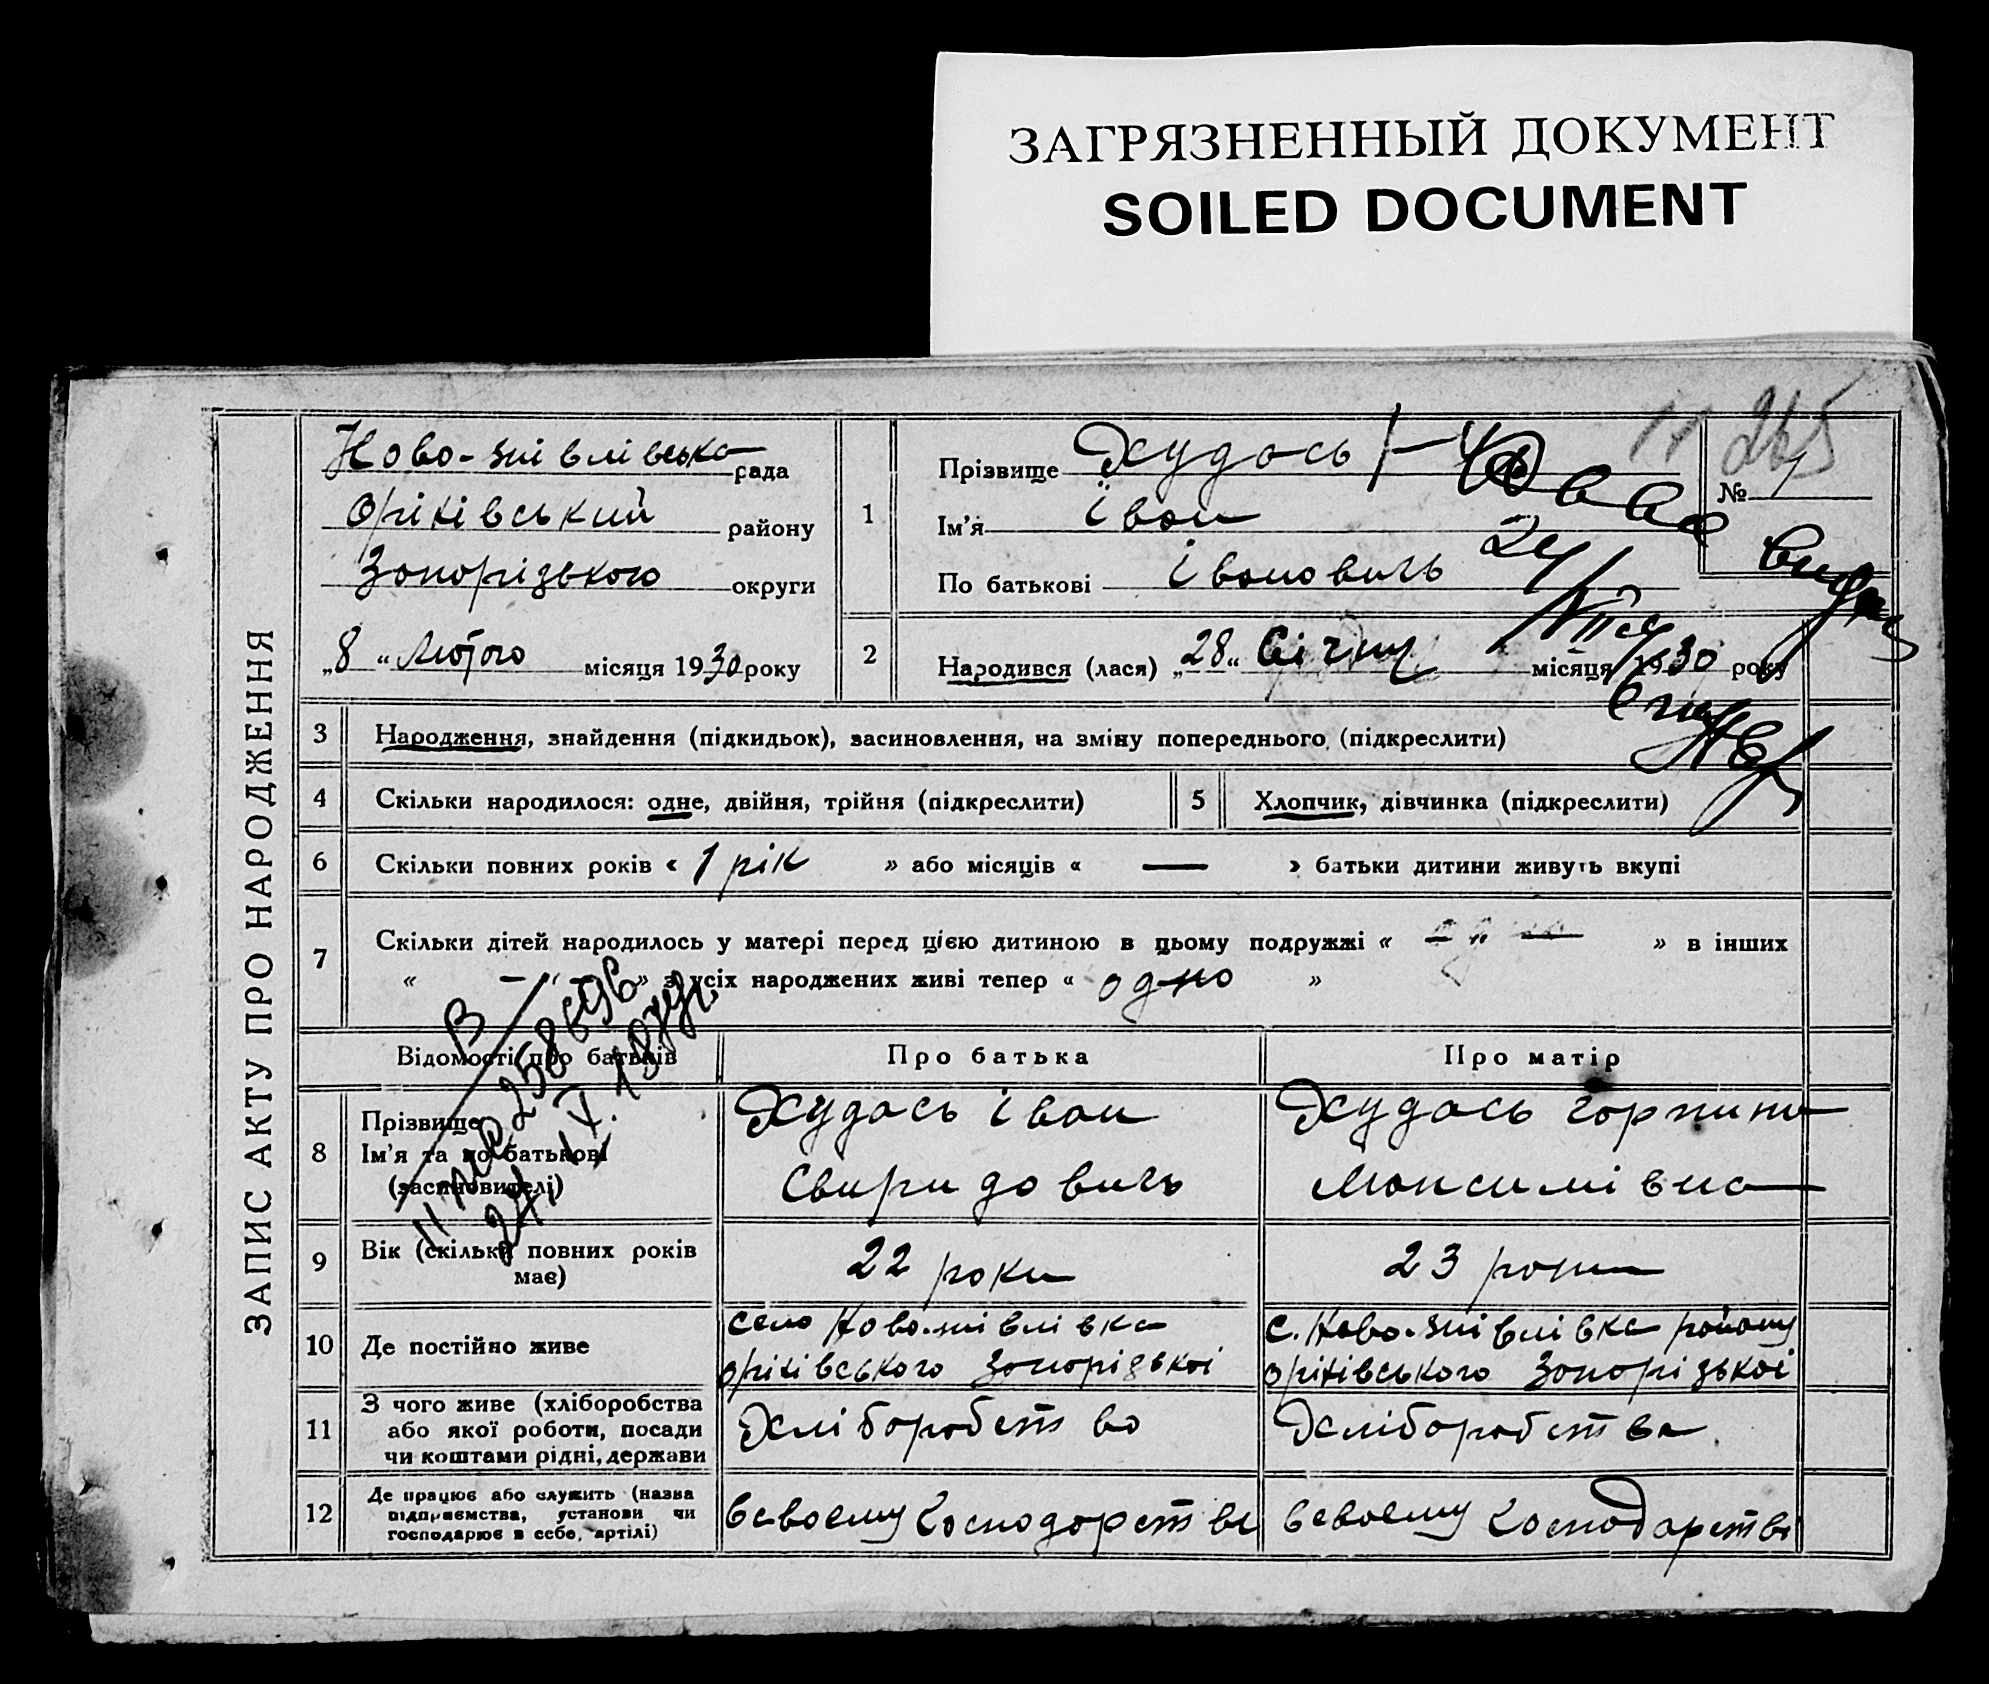 ЗАГРЯЗНЕННЫЙ ДОКУМЕНТ
SOILED DOCUMENT
ЗАПИС АКТУ ПРО НАРОДЖЕННЯ
рада
Оріхівський району
Запорізького округи
„8“ Лютого місяця 1930 року
1
Прізвище Худась
Ім'я Іван
По батькові Івановичь
№ 1
265
2
Народився (лася) „28“ Січня місяця 1930 року
3 Народження, знайдення (підкидьок), засиновлення, на зміну попереднього (підкреслити)
4 Скільки народилося: одне, двійня, трійня (підкреслити)
5 Хлопчик, дівчинка (підкреслити)
6 Скільки повних років « 1 рік » або місяців « — » батьки дитини живуть вкупі
7 Скільки дітей народилось у матері перед цією дитиною в цьому подружжі « — » в інших
« — » з усіх народжених живі тепер « одно »
Відомості про батьків
Про батька
Про матір
8
Прізвище
Ім'я та по батькові
(засиновителі)
Худась Іван
Свиридовичь
Худась Горпина
Максимівна
9 Вік (скільки повних років
має)
22 роки
23 роки
10 Де постійно живе
село
Оріхівського Запорізької
с. району
Оріхівського Запорізької
11 З чого живе (хліборобства
або якої роботи, посади
чи коштами рідні, держави
Хліборобство
Хліборобства
12 Де працює або служить (назва
підприємства, установи чи
господарює в себе, артілі)
всвоему Господарстві
всвоему Господарстві